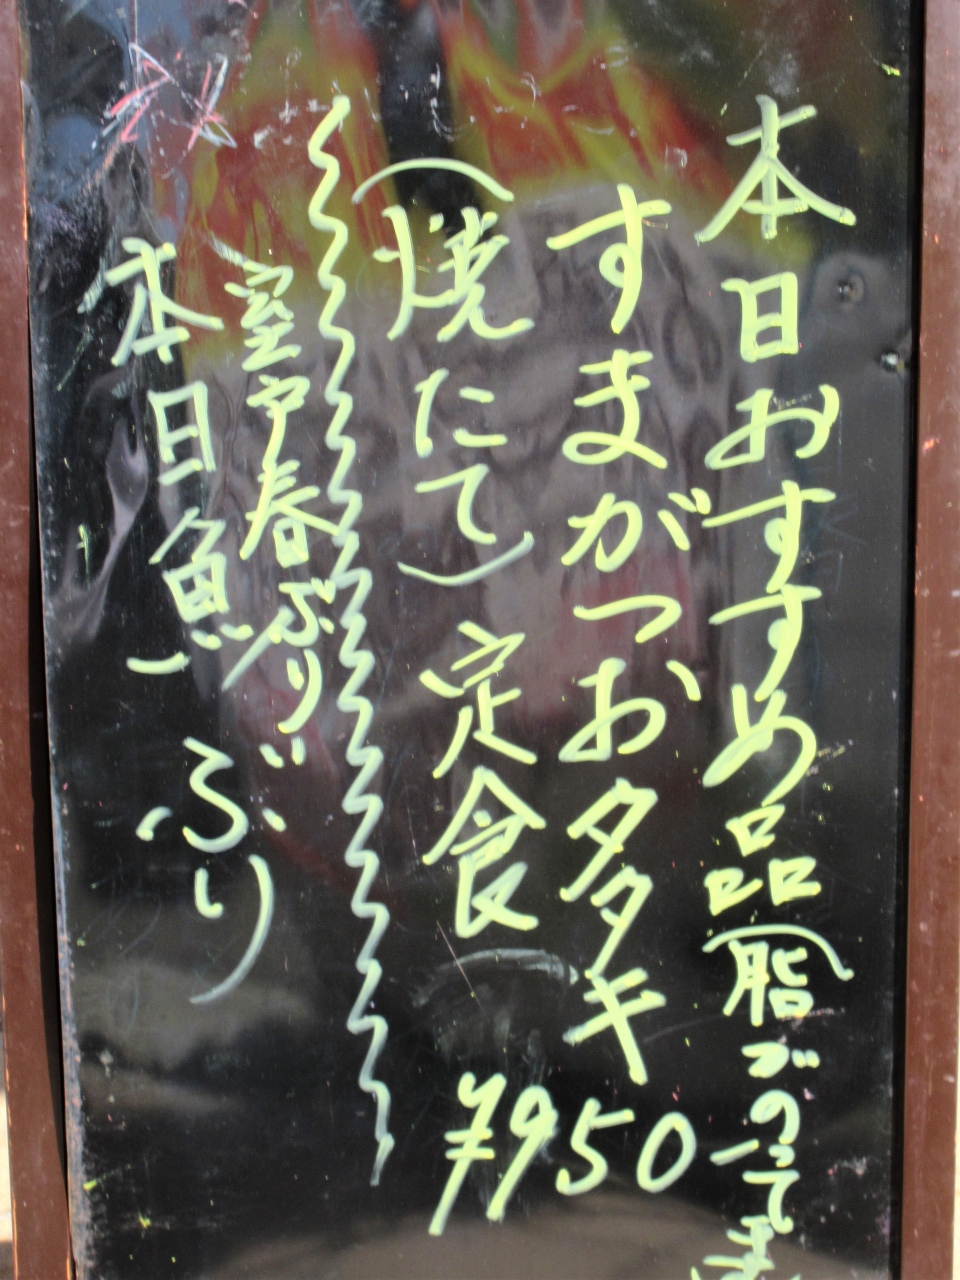 本日おすすめ品(脂がのってま
すまがつお タタキ
(焼たて)定食
¥950
室戸春ぶり
本日魚 ぶり